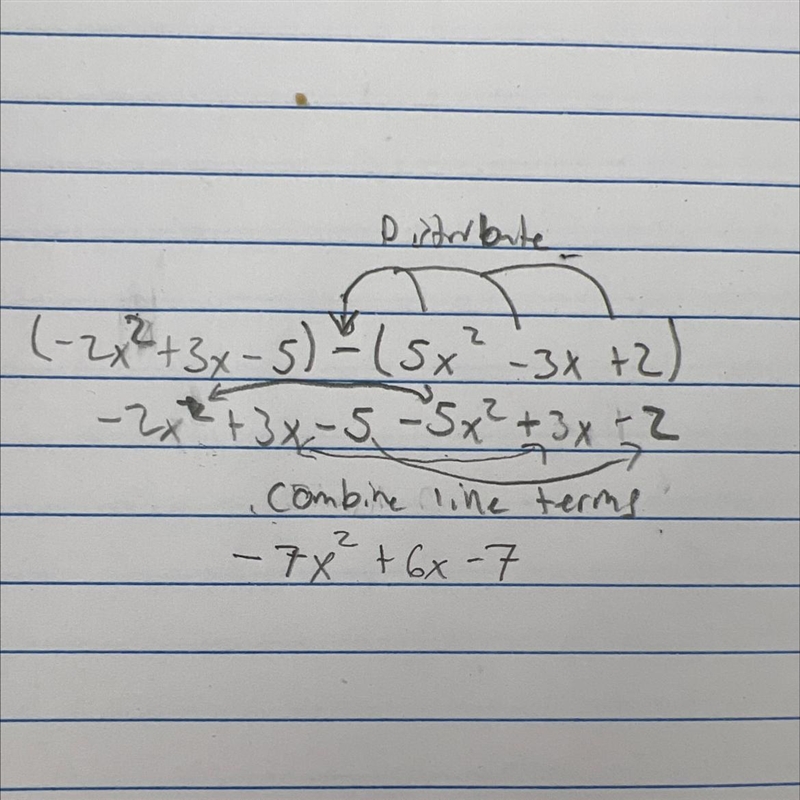 Distribute -
(-2x²+3x-5)-(5x² -3x +2)
-2x²+3x-5 -5x²+3x-2
combine like terms
-7x²+6x-7